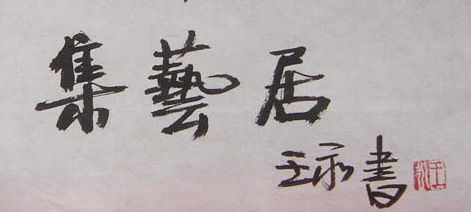 集藝居
王永書